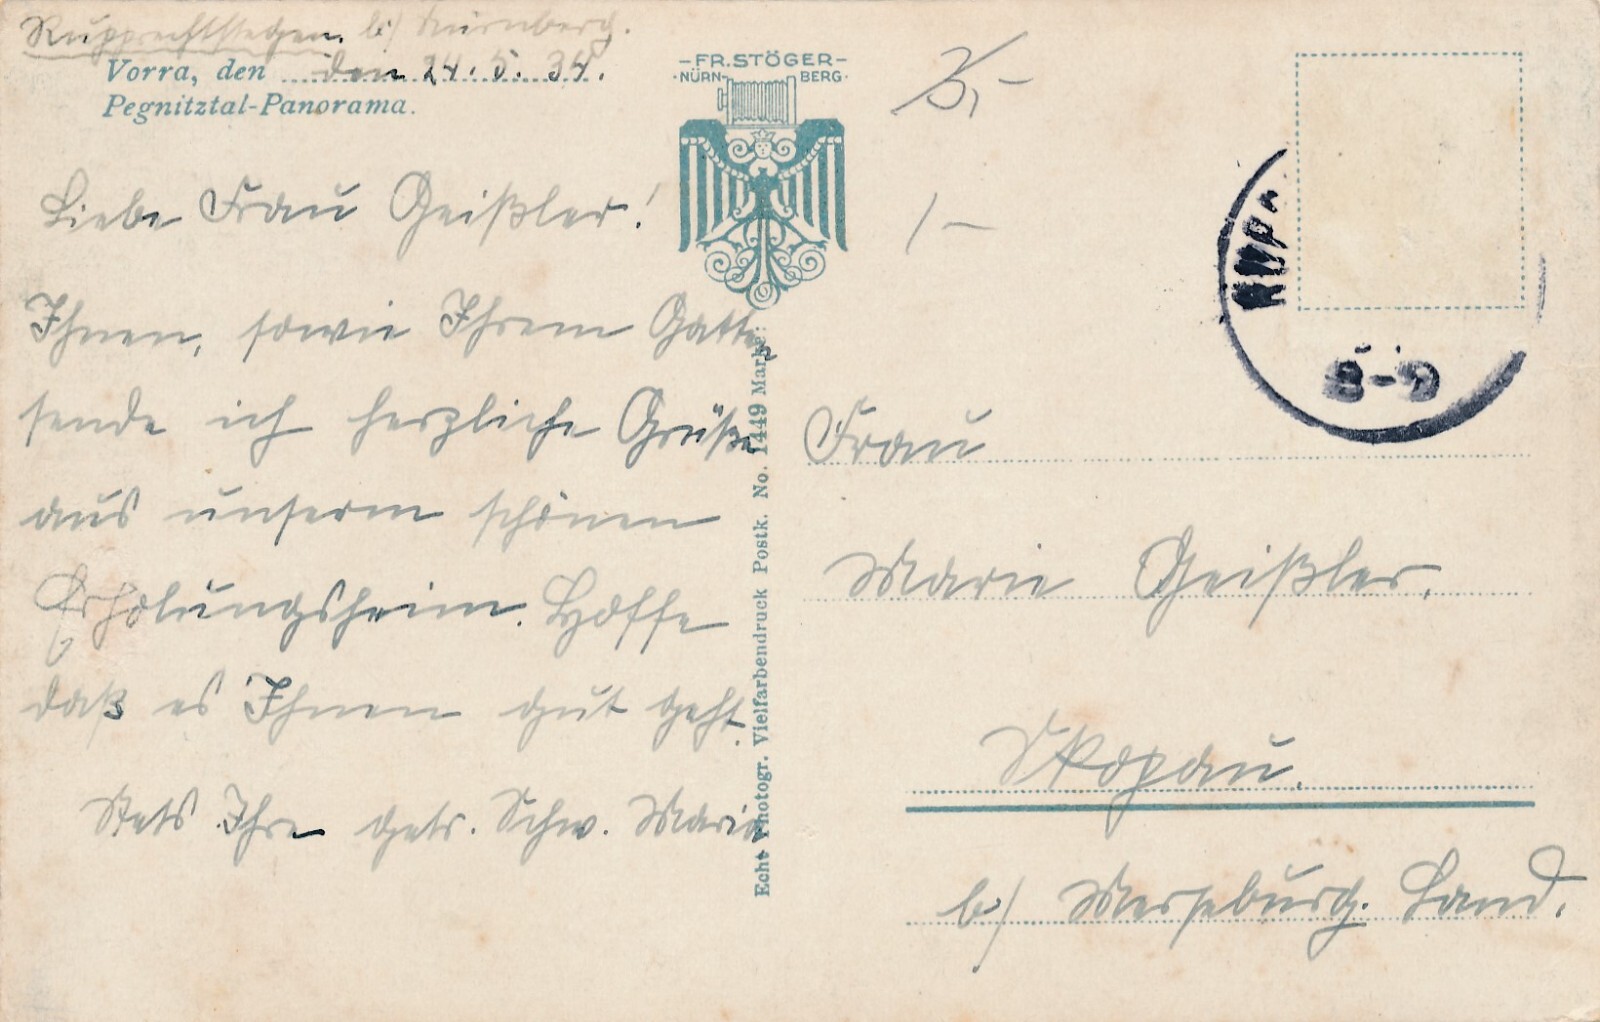 Rupprechtstegen. b/ Nürnberg.
Vorra, den den 24. 5. 34.
Pegnitztal-Panorama.
Liebe Frau Geißler!
Ihnen, sowie Ihrem Gatten
sende ich herzliche Grüße
aus unserm schönen
Erholungsheim. Hoffe
daß es Ihnen gut geht.
Stets Ihre getr. Schw. Maria
FR. STÖGER
NÜRN BERG
Echt Photogr. Vielfarbendruck Postk. No. 1449 Marke:
1-
8-9
Frau
Marie Geißler.
Skopau.
b/ Merseburg. Land.